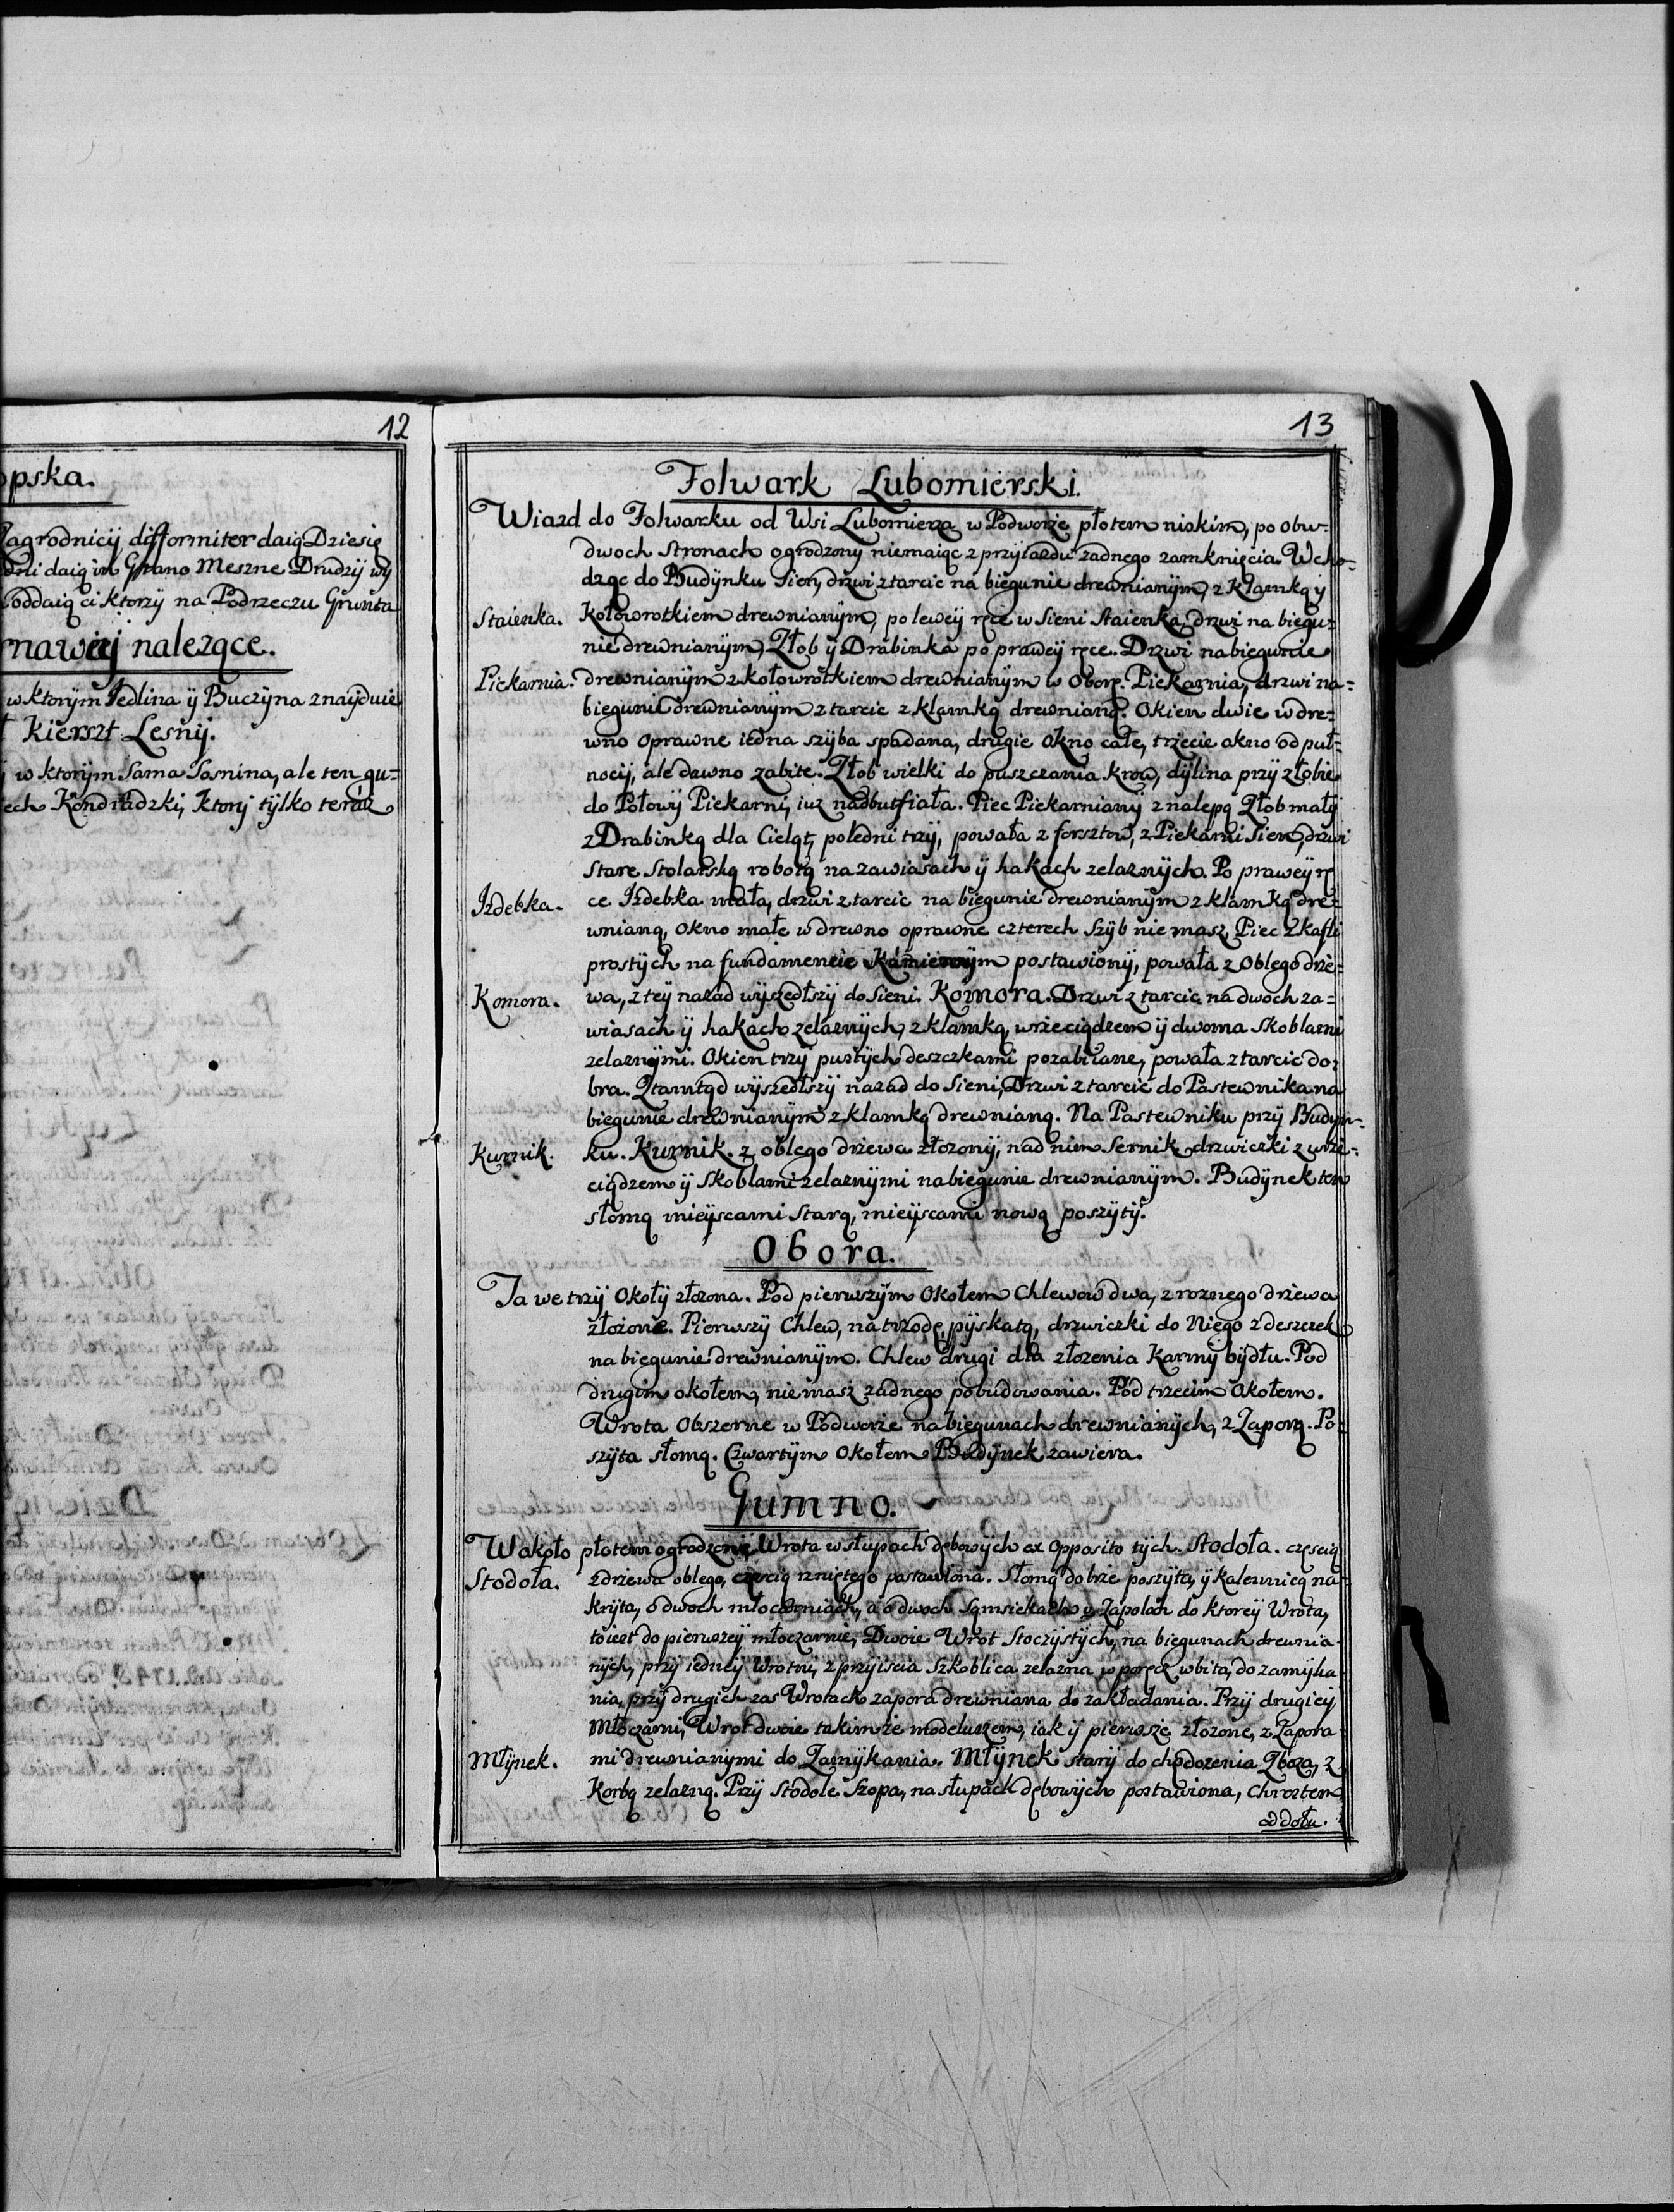 12
opska.
Zagrodnicÿ difformiter daią Dziesię
dni daią in Grano Meszne Drudzÿ wÿ
oddaią ci ktorzÿ na Podrzeczu Grunta
nalezące.
w ktorÿm Jedlina ÿ Buczÿna znaÿduie
Kierszt Lesnÿ.
w ktorÿm Sama Sosnina, ale ten gu=
ech ktorÿ tÿlko teraz
13
Folwark Lubomierski.
Wiazd do Folwarku od Wsi Lubomierza w Podworze płotem niskim, po obu=
dwoch Stronach ogrodzony niemaiąc z przÿiazdu zadnego zamknięcia. Wcho=
dząc do Budÿnku Sien, drzwi z tarcic na biegunie drewnianÿm, z Klamką ÿ
Staienka. Kołowrotkiem drewnianÿm, po leweÿ ręce w Sieni Staienka, drzwi na biegu=
nie drewnianÿm, Złob ÿ Drabinka po praweÿ ręce. Drzwi na biegunie
Piekarnia. drewnianÿm z kołowrotkiem drewnianÿm w Oborę. Piekarnia, drzwi na=
biegunie drewnianÿm z tarcic z klamką drewnianą. Okien dwie w dre=
wno oprawne iedna szÿba spadana, drugie Okno całe, trzecie okno od puł=
nocÿ, ale dawno zabite. Złob wielki do puszczania krow, dÿlina przÿ złobie
do Połowÿ Piekarni, iuz nadbutfiała. Piec Piekarnianÿ z nalepą Złob małÿ
z Drabinką dla Cieląt, poledni trzÿ, powała z forsztow, z Piekarni Sien, drzwi
Stare Stolarską robotą na zawiasach ÿ hakach zelaznÿch. Po praweÿ rę
Izdebka. ce Izdebka mała, drzwi z tarcic na biegunie drewnianÿm z klamką dre=
wnianą, Okno małe w drewno oprawne czterech Szÿb nie masz, Piec z kafli
prostÿch na fundamencie Kamiennÿm postawionÿ, powała z Oblego drze=
Komora. wa, z teÿ nazad wÿszedłszÿ do Sieni. Komora. Drzwi z tarcic na dwoch za=
wiasach ÿ hakach zelaznÿch z klamką, wrzeciądzem ÿ dwoma skoblami
zelaznÿmi. Okien trzÿ pustÿch deszczkami pozabiiane, powała z tarcic do=
bra. Ztamtąd wÿszedłszÿ nazad do Sieni, Drzwi z tarcic do Pastewnika na
biegunie drewnianÿm z klamką drewnianą. Na Pastewniku przÿ Budÿn=
Kurnik. ku. Kurnik. z oblego drzewa złozonÿ, nad nim Sernik drzwiczki z wrze=
ciądzem ÿ Skoblami zelaznÿmi na biegunie drewnianÿm. Budÿnek ten
słomą mieÿscami Starą, mieÿscami nową poszÿtÿ.
Obora.
Ta we trzÿ Okołÿ złozona. Pod pierwszÿm Okołem Chlewow dwa, z roznego drzewa
złozone. Pierwszÿ Chlew, na trzodę pÿskatą, drzwiczki do Niego z deszczek
na biegunie drewnianÿm. Chlew drugi dla złozenia Karmÿ bÿdłu. Pod
drugim okołem, nie masz zadnego pobudowania. Pod trzecim Okołem.
Wrota Obszerne w Podworze na biegunach drewnianÿch, z Zaporą. Po=
szÿta słomą. Czwartÿm Okołem Budÿnek zawiera.
Gumno.
Wokoło płotem ogrodzone, Wrota w słupach dębowÿch ex Opposito tÿch. Stodoła. częscią
Stodoła. z drzewa oblego, częscią rzniętego postawiona. Słomą dobrze poszÿta, ÿ kalennicą na=
krÿta, o dwoch młocarniach, a o dwoch Sąmsiekach ÿ Zapolach do ktoreÿ Wrota,
to iest do pierwszeÿ młoczarnie, Dwoie Wrot Stoczÿstÿch, na biegunach drewnia=
nÿch, przÿ iedneÿ Wrotni, z przÿiscia Szkoblica zelazna w poręcz wbita, do zamÿka=
nia, przÿ drugich zas Wrotach zapora drewniana do zakładania. Przÿ drugieÿ
Młoczarni, Wrot dwoie takimze modeluszem, iak ÿ pierwsze złozone, z Zapora=
Młÿnek. mi drewnianÿmi do Zamÿkania. Młÿnek starÿ do chędozenia Zboza, z
Korbą zelazną. Przÿ Stodole Szopa, na słupach dębowÿch postawiona, Chrostem
od dołu.